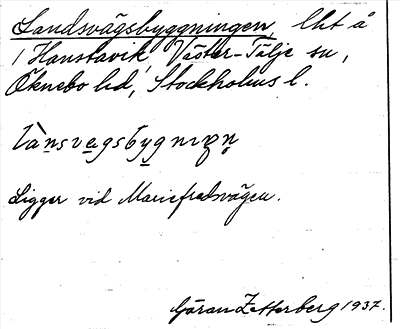 Landsvägsbyggningen, lht å
/ Hanstavik, Väster-Tälje sn,
Öknebo hd, Stockholms l.
Ligger vid Mariefredsvägen.
Göran Zetterberg 1937.